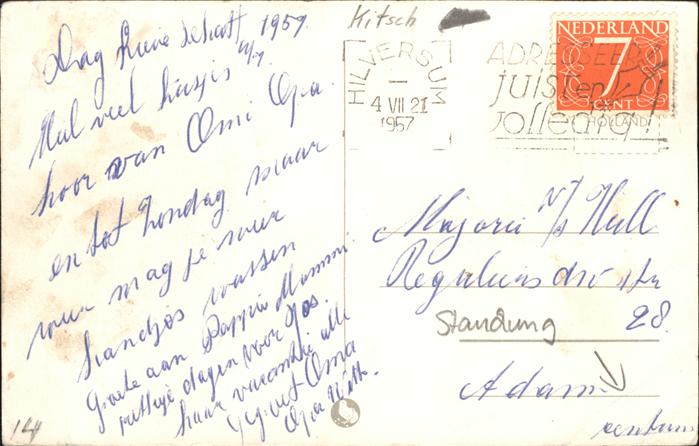 Kitsch
Dag lieve schat 1957.
4/7
Heel veel kusjes
hoor van Omi Opa
en tot Zondag maar
weer mag je weer
handjes wassen
Groete aan Pappie Mammi.
prettige dagen voor Jos.
haar vacantie alle
gegroet Oma
Opa
14
HILVERSUM
4 VII 21
1957
ADRESSEER
juist en
volledig!
NEDERLAND
7
CENT
HOLLAND
Marjorie v/d Hull
Reguliersdw str
28.
Standung
Adam
centrum